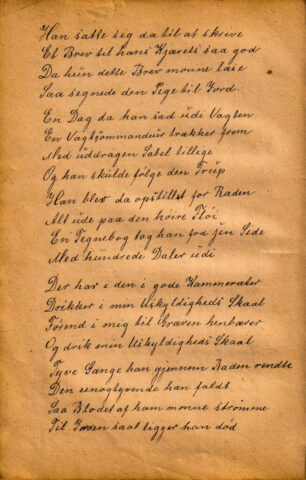 Han satte sig da til at skreve
Et Brev til hans Kjæreste saa god
Da hun dette Brev monne læse
Saa segnede den Pege til Jord.
En Dag da han sad udi Vagten
En Vagtkommandeur trækker from
Med uddragen Sabel tillige
Og han skulde følge den Trup
Han blev da opstillet for Raden
Alt ude paa den høire Fløi
En Tegnebog tog han fra sin Side
Med hundrede Daler udi
Der har i den i gode Kammerater
Drikker i min Uskyldigheds Skaal
Førend i mig til Graven henbærer
Og drik min Uskyldigheds Skaal
Tyve Gange han gjennem Raden rendte
Den enogtyvende han faldt
Saa Blodet af ham monne strømme
Til Jorden saat ligger han død